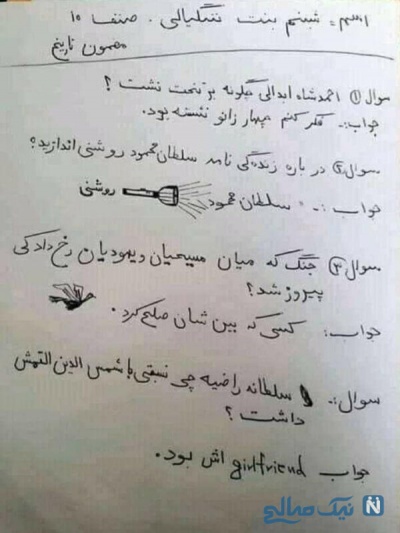 اسم = شبنم بنت شگیالی. صنف ۱۰
مضمون تاریخ
سوال ۱) احمدشاه ابدالی چگونه بر تخت نشست؟
جواب:- فکر کنم چهار زانو نشسته بود.
سوال ۲) در باره زندگی نامه سلطان محمود روشنی اندازید؟
جواب:- سلطان محمود روشنی
سوال ۳) جنگ که میان مسیحیان و یهودیان رخ داد کی
پیروز شد؟
جواب: کسی که بین شان صلح کرد.
سوال:- سلطانه راضیه چی نسبتی با شمس الدین التمش
داشت؟
جواب girlfriend اش بود.
نیک صالحی